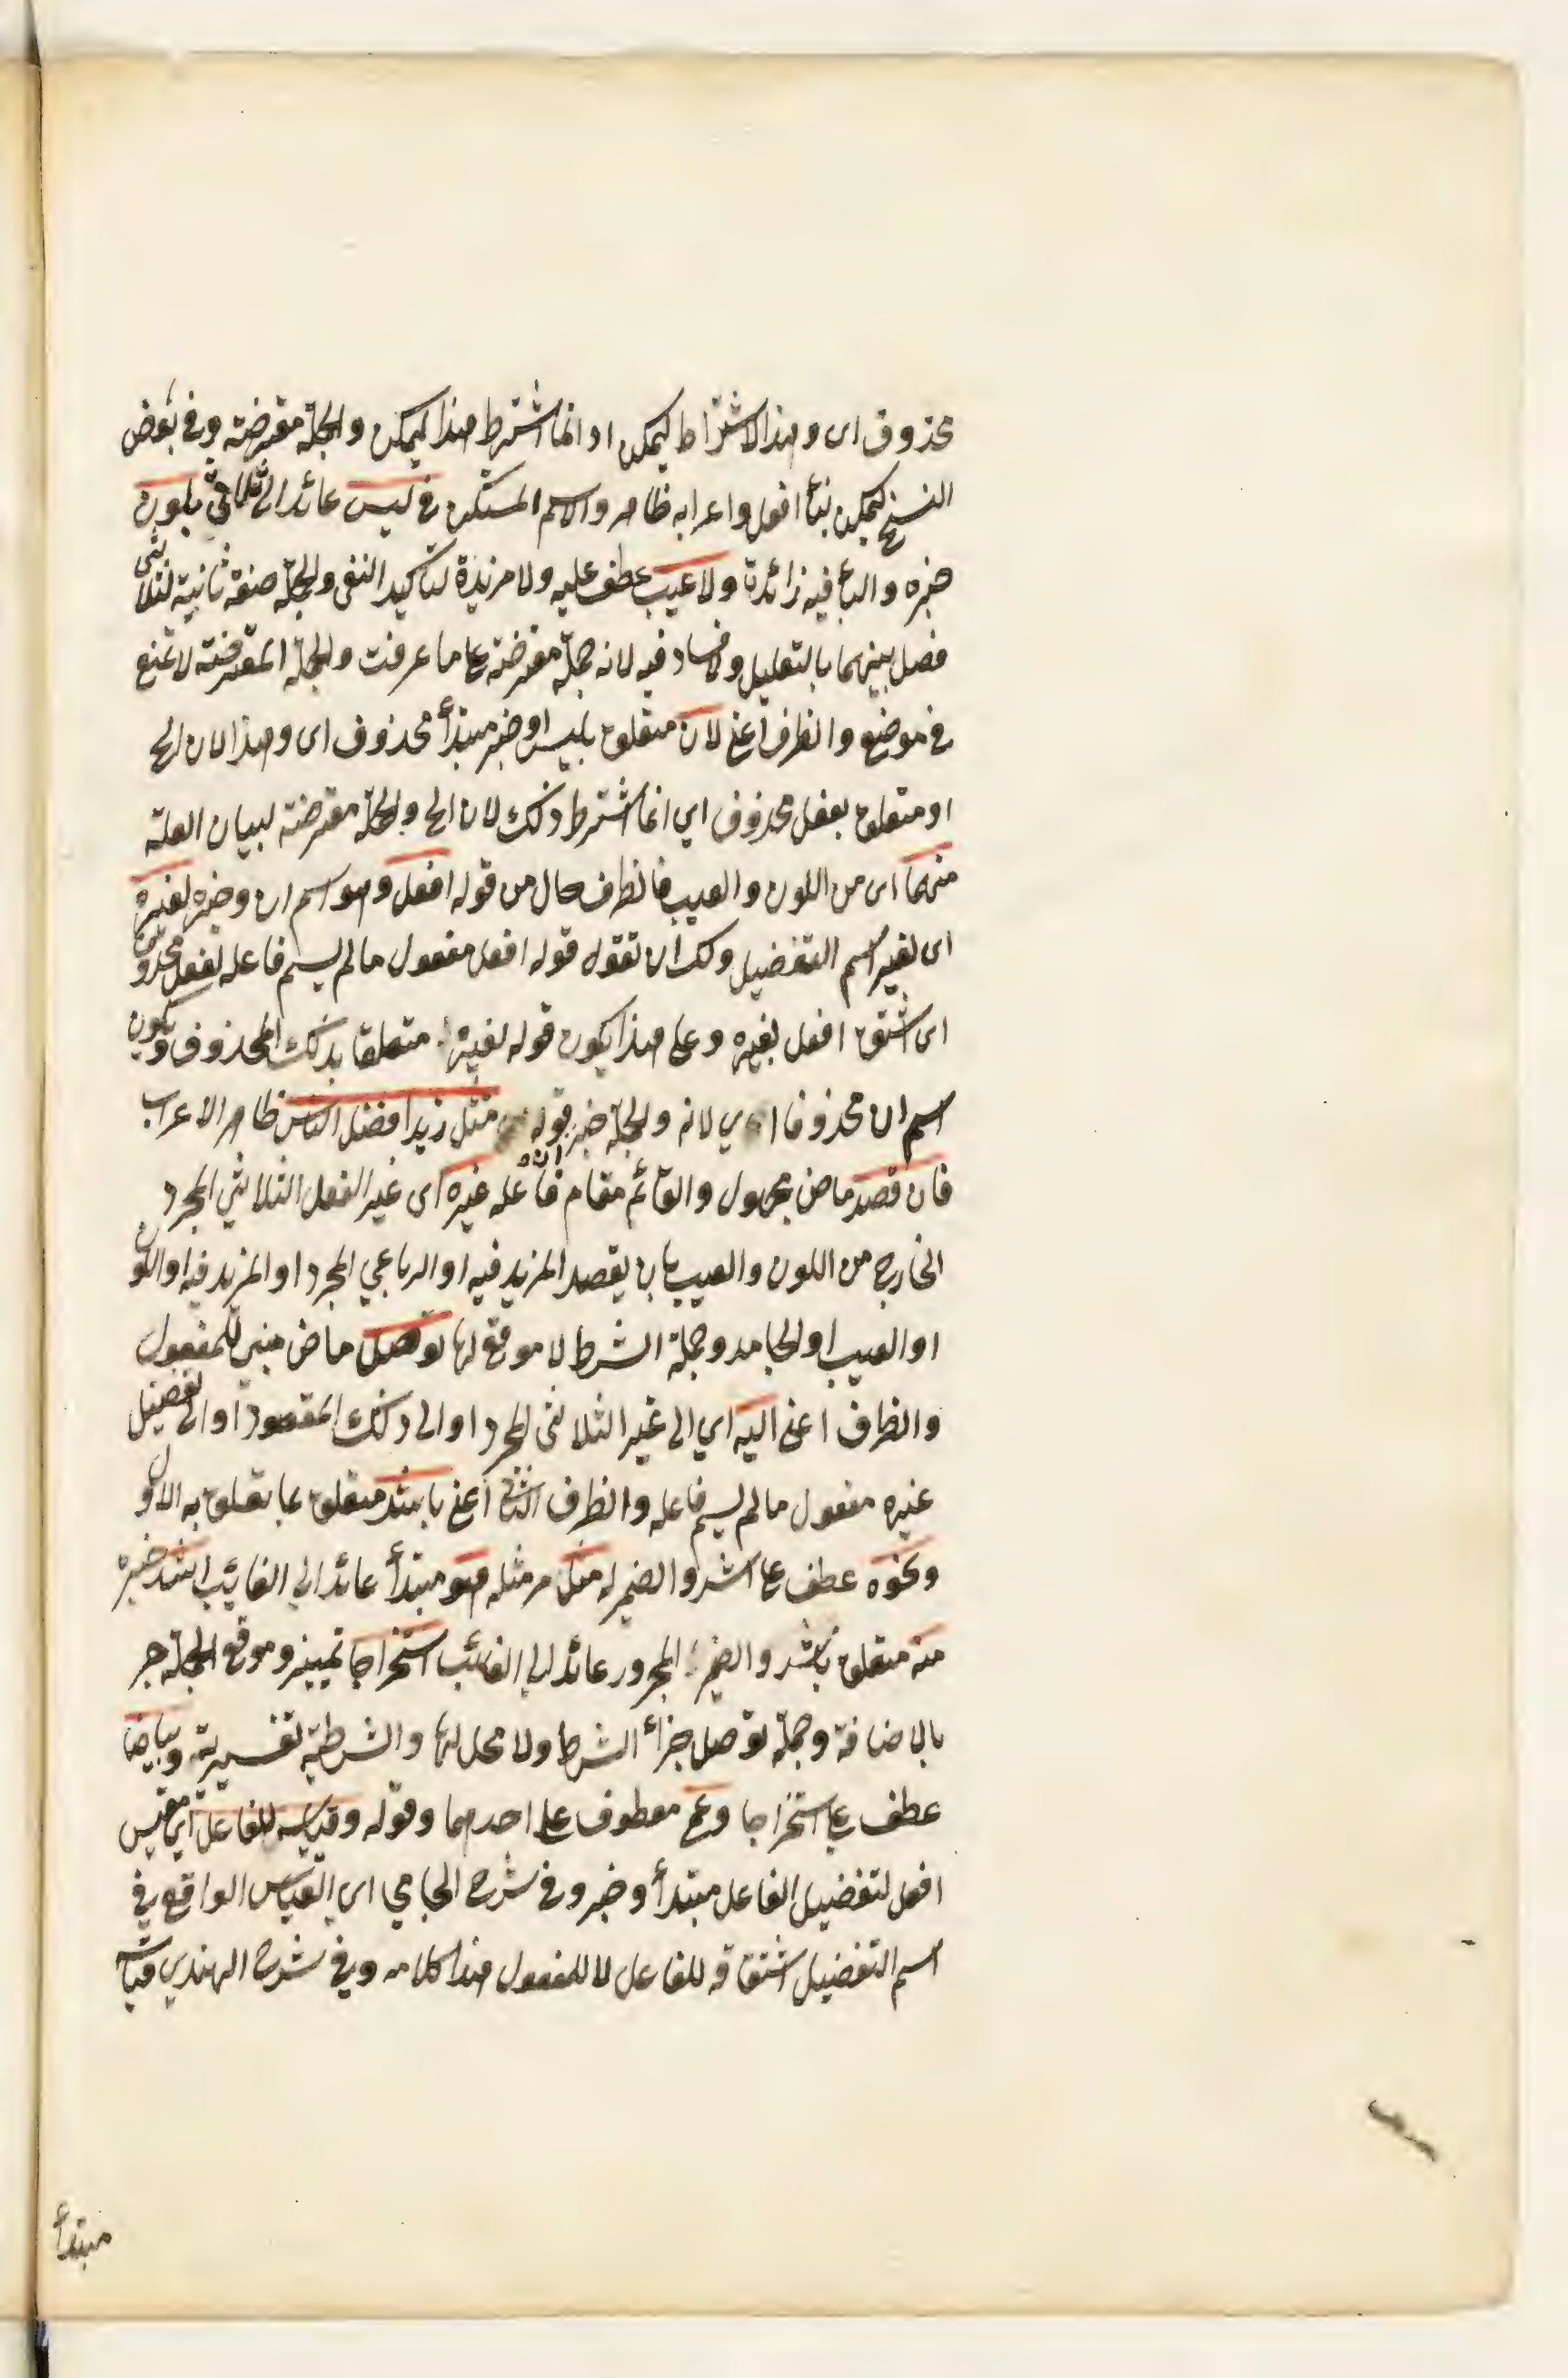 محذوف اى وهذا الاشتراط ليمكن او انما اشترط هذا ليمكن والجملة معترضة وفى بعض
النسخ ليمكن بناء افعل واعرابه ظاهر والاسم المستكن فى ليس عائد الى ثلاثى بلون
خبره والباء فيه زائدة ولا عيب عطف عليه ولا مزيدة لتأكيد النفى والجملة صفة ثانية لثلاثى
فصل بينهما بالتعليل ولا فساد فيه لانه جملة معترضة على ما عرفت والجملة المعترضة لا تمنع
فى موضع والظرف اعنى لان متعلق بليس او خبر مبتدأ محذوف اى وهذا لان الخ
او متعلق بفعل محذوف اي انما اشترط ذلك لان الخ والجملة معترضة لبيان العلة
منهما اى من اللون والعيب فالظرف حال من قوله افعل وهو اسم ان وخبره لغيره
اى لغير اسم التفضيل ولك ان تقول قوله افعل مفعول ما لم يسم فاعله لفعل محذوف
اى اشتق افعل لغيره وعلى هذا يكون قوله لغيره متعلقا بذلك المحذوف ويكون
اسم ان محذوفا اي لانه والجملة خبر قوله مثل زيد افضل الناس ظاهر الاعراب
فان قصد ماض مجهول والقائم مقام فاعله غيره اى غير الفعل الثلاثي المجرد
الخارج من اللون والعيب بان يقصد المزيد فيه او الرباعي المجرد او المزيد فيه او اللون
او العيب او الجامد وجملة الشرط لا موقع لها توصل ماض مبني للمفعول
والظرف اعنى اليه اي الى غير الثلاثى المجرد او الى ذلك المقصود او الى تفضيل
غيره مفعول ما لم يسم فاعله والظرف الثانى اعنى باشد متعلق بما تعلق به الاول
ونحوه عطف على اشد والضمير له مثل مر مثله هو مبتدأ عائد الى الغائب اشد خبره
منه متعلق باشد والضمير المجرور عائد الى الغائب استخراجا تمييز وموقع الجملة جر
بالاضافة وجملة توصل جزاء الشرط ولا محل لها والشرطية تفسيرية وبياضا
عطف على استخراجا وعمى معطوف على احدهما وقوله وقياسه للفاعل اي مقيس
افعل لتفضيل الفاعل مبتدأ وخبر وفى شرح الجامي اى القياس الواقع فى
اسم التفضيل اشتقاقه للفاعل لا للمفعول هذا كلامه وفى شرح الهندي قياسه
مبتدأ